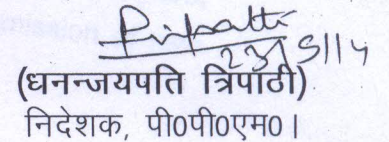 23/5/14
(धनन्जयपति त्रिपाठी)
निदेशक, पी0पी0एम0।